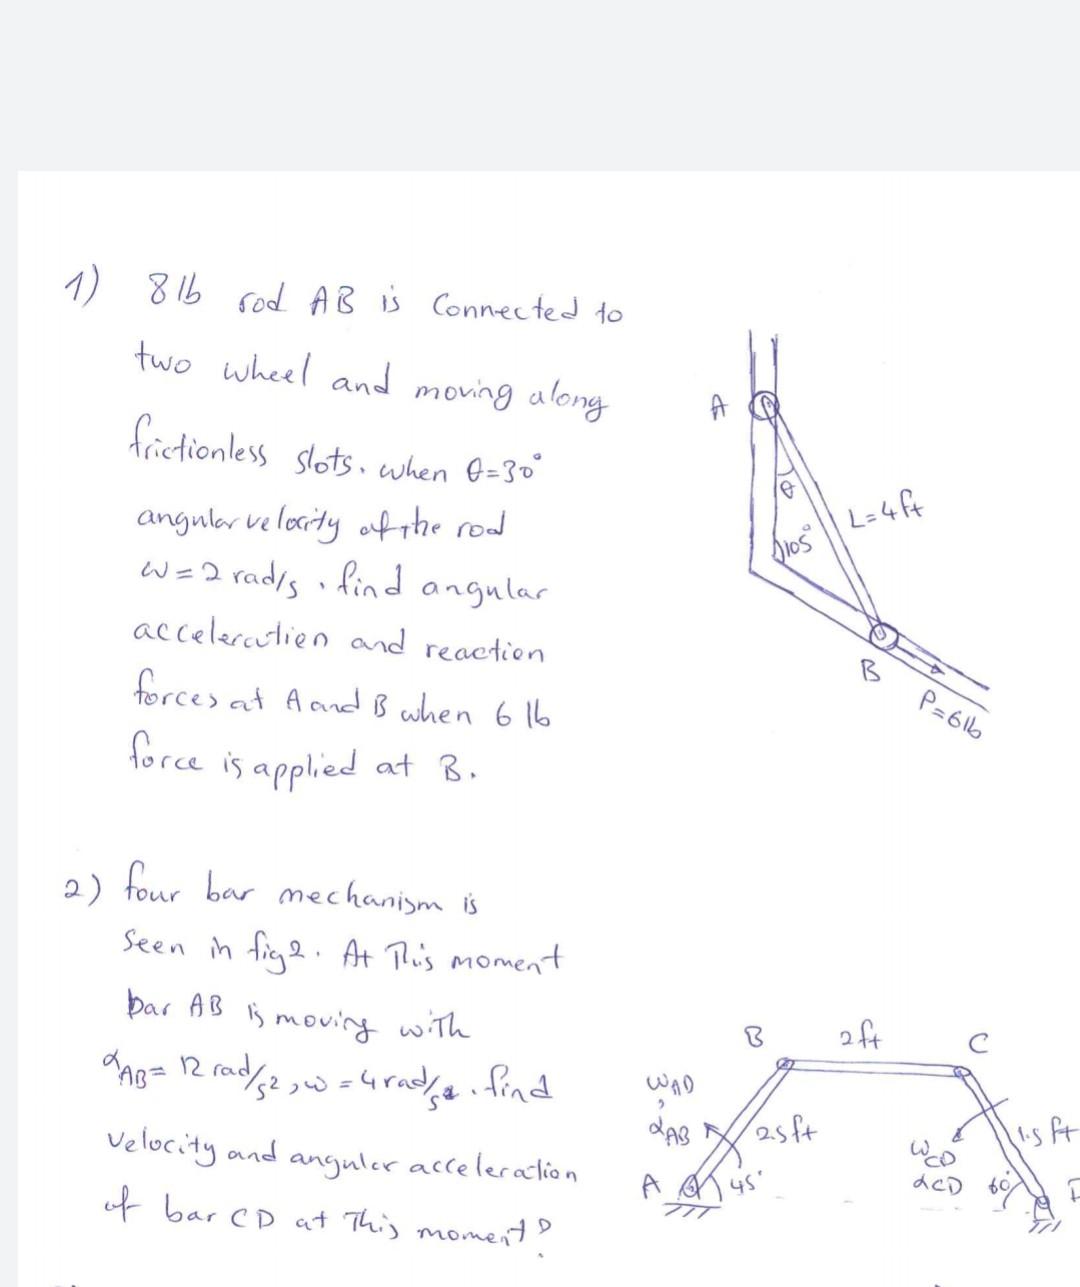 1) 8 lb rod AB is Connected to
two wheel and moving along
frictionless slots. when θ=30°
angular velocity of the rod
ω=2 rad/s . find angular
acceleration and reaction
forces at A and B when 6 lb
force is applied at B.
A
θ
105°
L=4ft
B
P=6lb
2) four bar mechanism is
Seen in fig 2. At This moment
bar AB is moving with
αAB= 12 rad/s2 , ω =4rad/s . find
velocity and angular acceleration
of bar CD at This moment?
B
2ft
C
ωAD
,
αAB
2.5ft
A
45°
ωCD
αCD
60°
1.5 ft